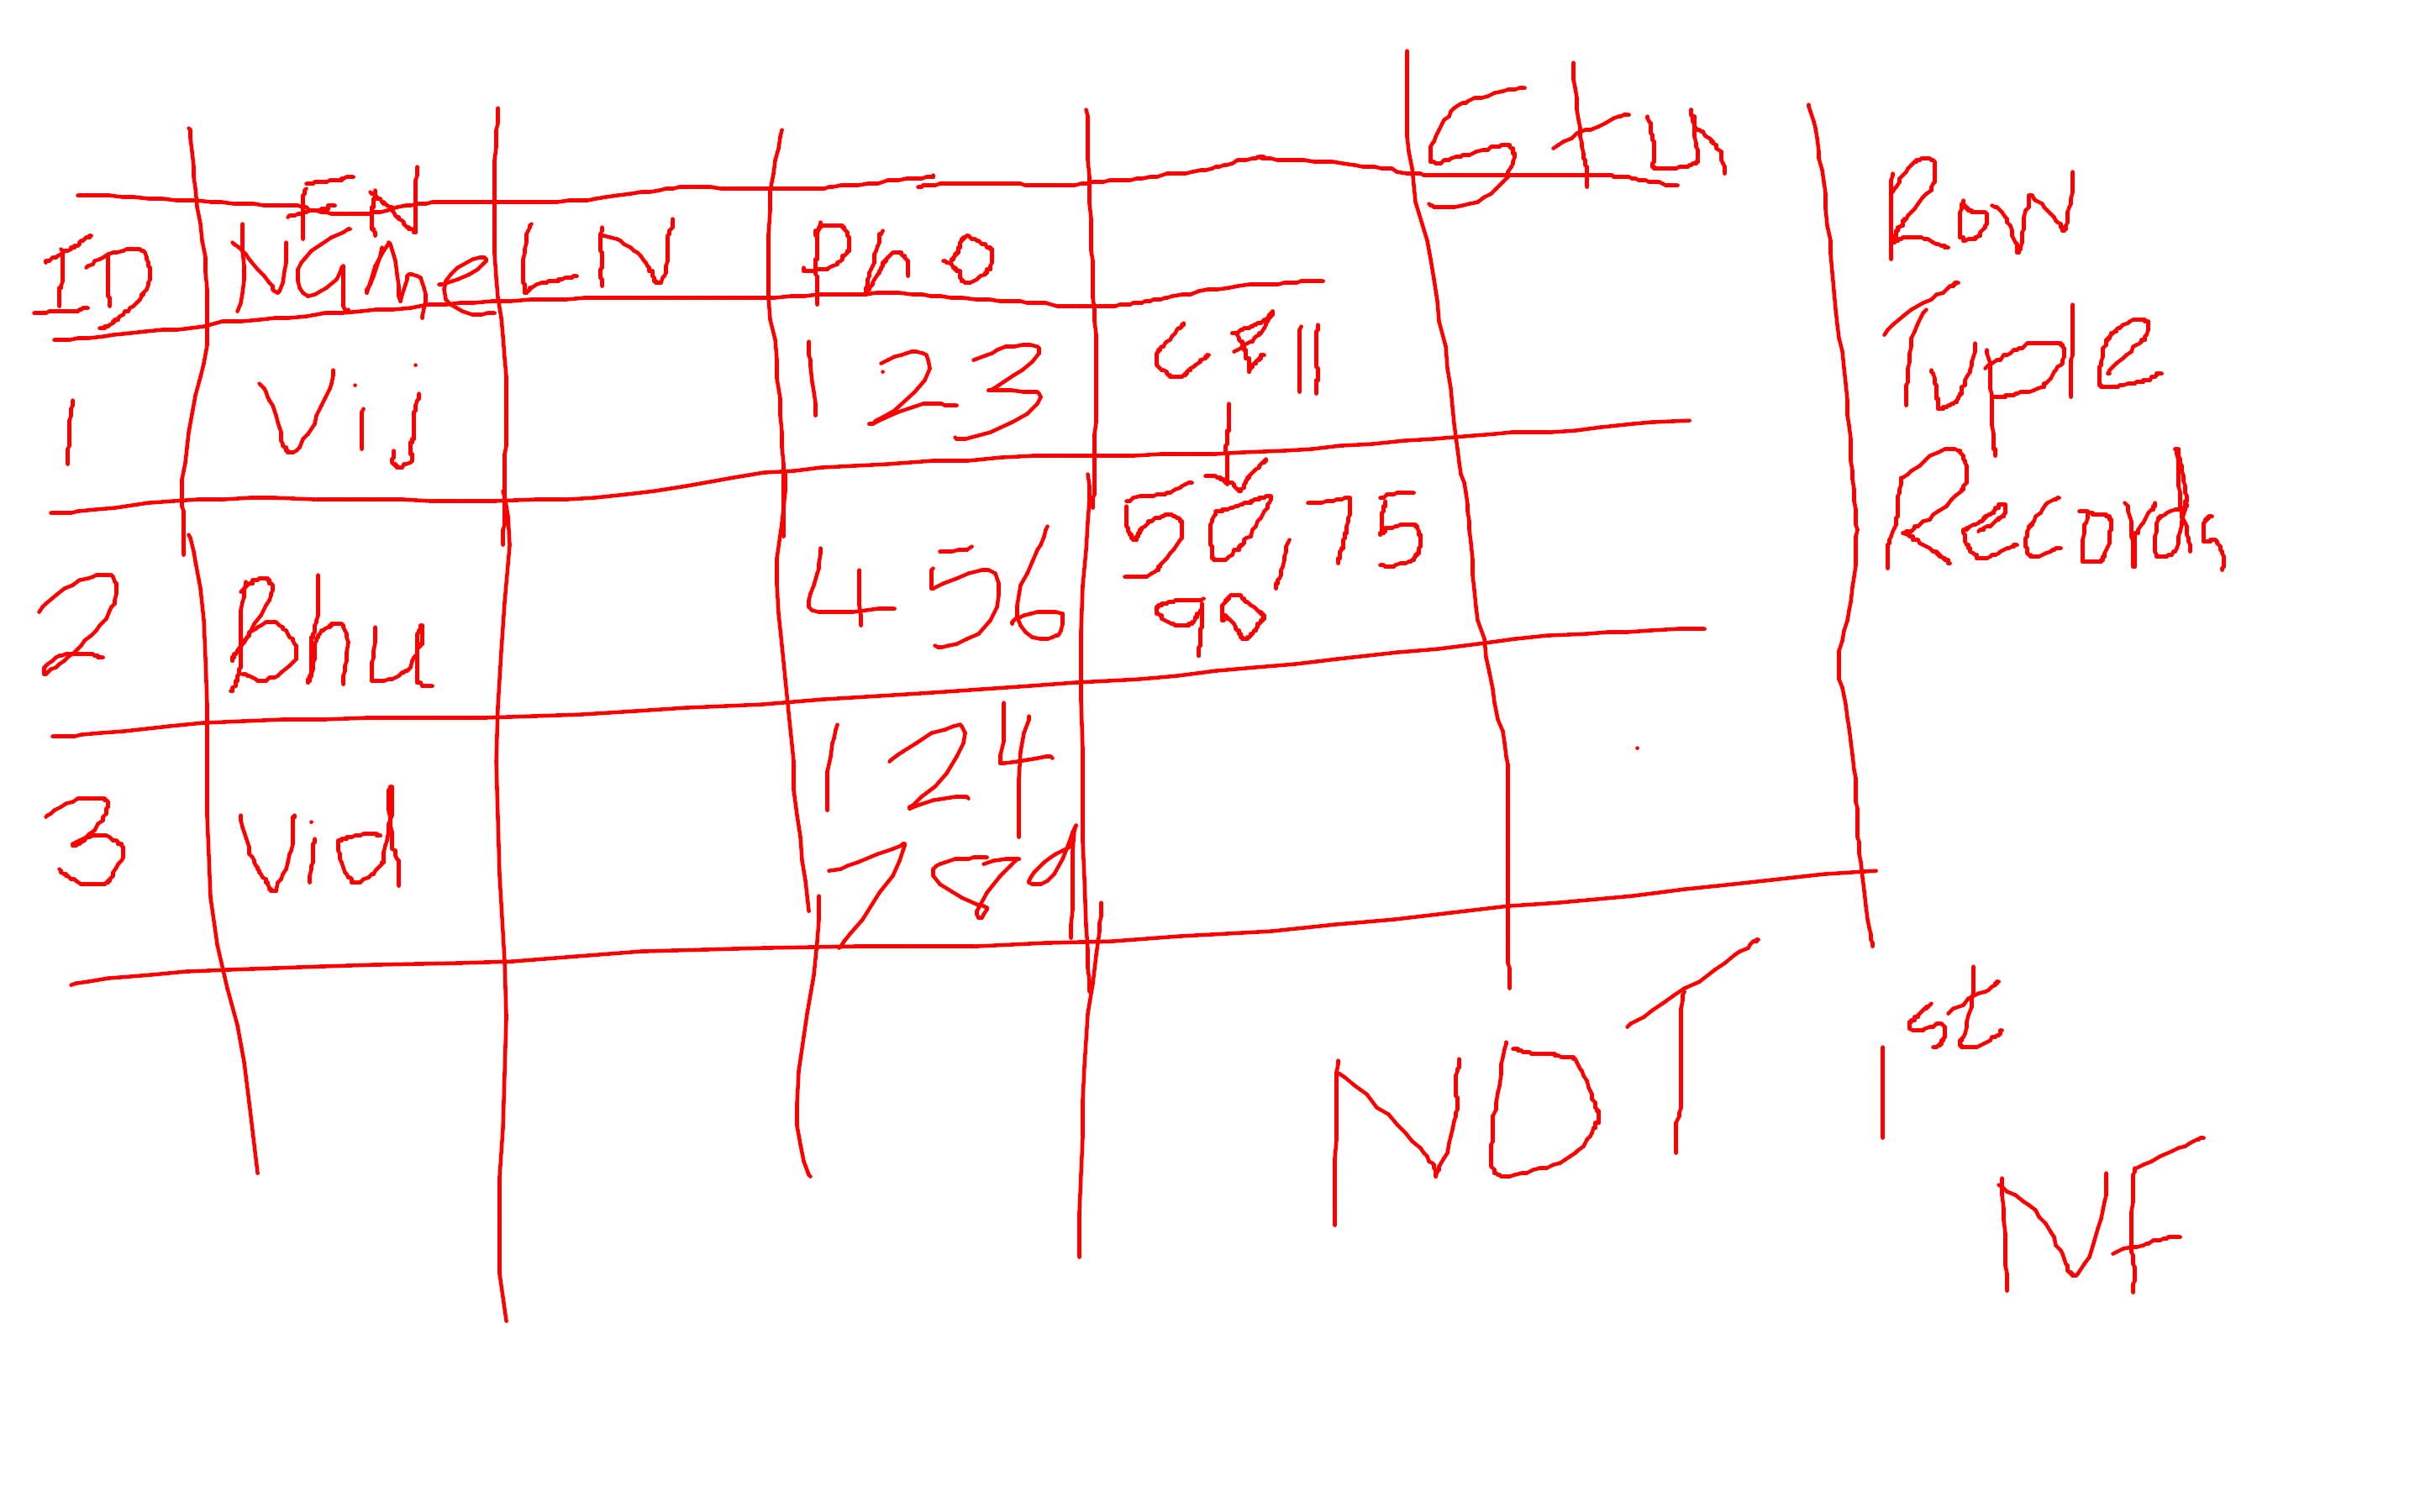 Stu
FN
ID Name LN Pho
1 Vij 123 cell
2 Bhu 456 50, 75
90
3 Vid 124
789
Row
Tuple
Records
NDT
1st
NF